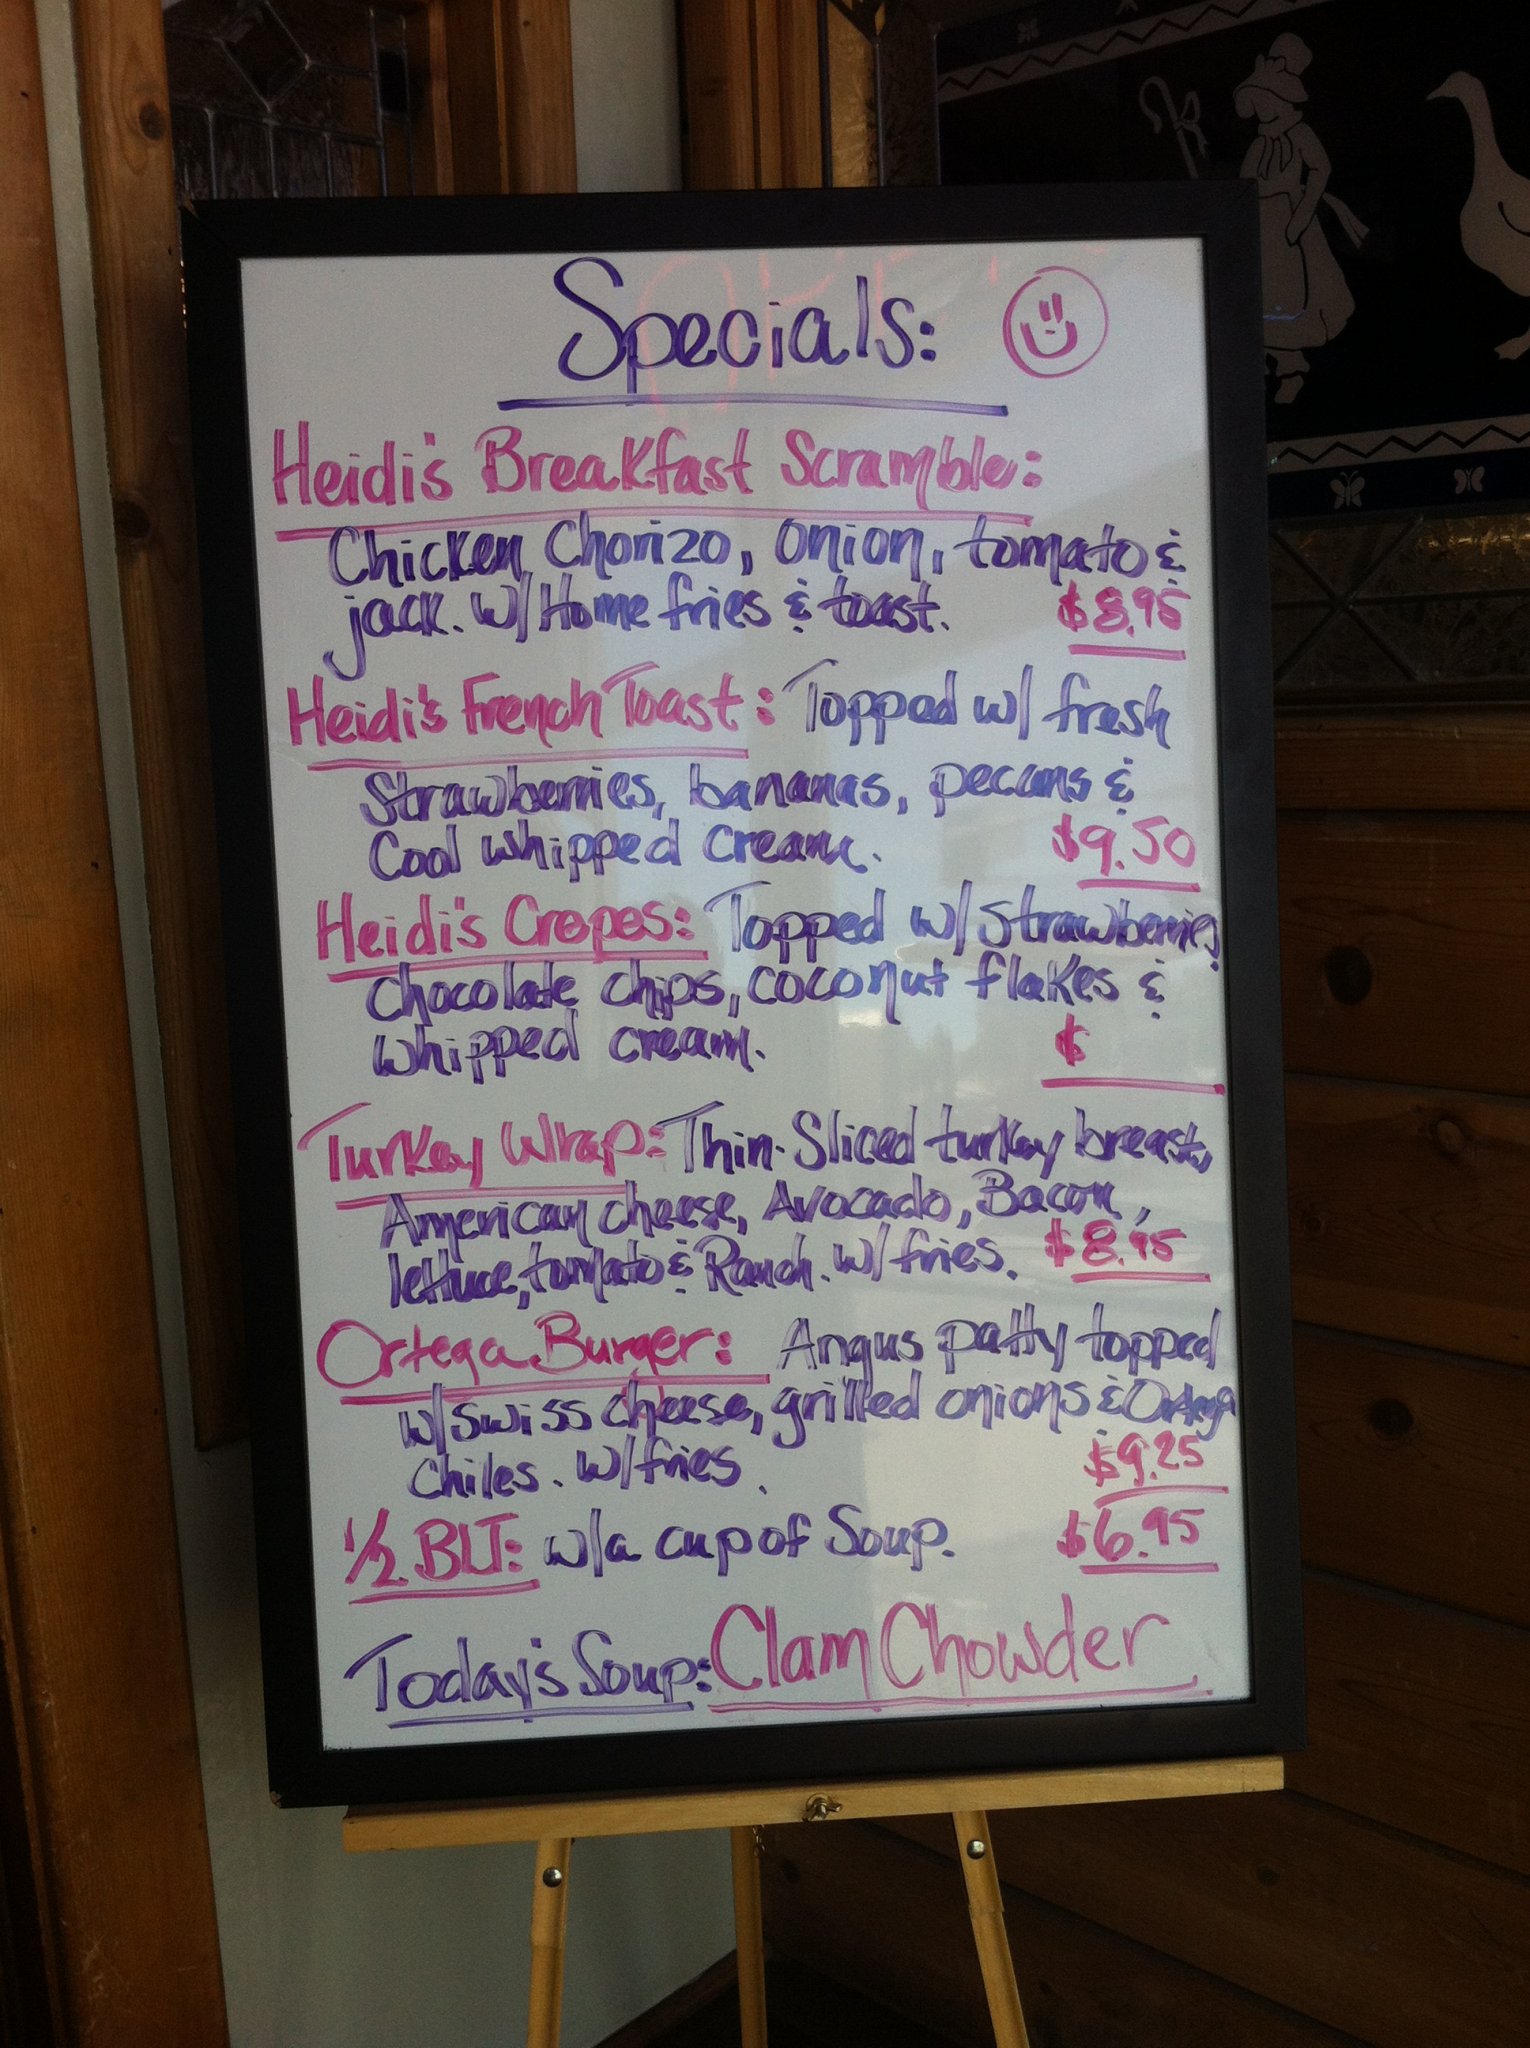 Specials:
Heidi's Breakfast Scramble:
Chicken Chorizo, onion, tomato &
jack. w/ Home fries & toast. $8.95
Heidi's French Toast: Topped w/ fresh
Strawberries, bananas, pecans &
Cool whipped cream. $9.50
Heidi's Crepes: Topped w/ Strawberries,
Chocolate chips, coconut flakes &
whipped cream. $
Turkey Wrap: Thin-Sliced turkey breast,
American cheese, Avocado, Bacon,
lettuce, tomato & Ranch. w/ fries. $8.95
Ortega Burger: Angus patty topped
w/ swiss cheese, grilled onions & Ortega
Chiles. w/ fries. $9.25
1/2 BLT: w/ a cup of Soup. $6.95
Today's Soup: Clam Chowder